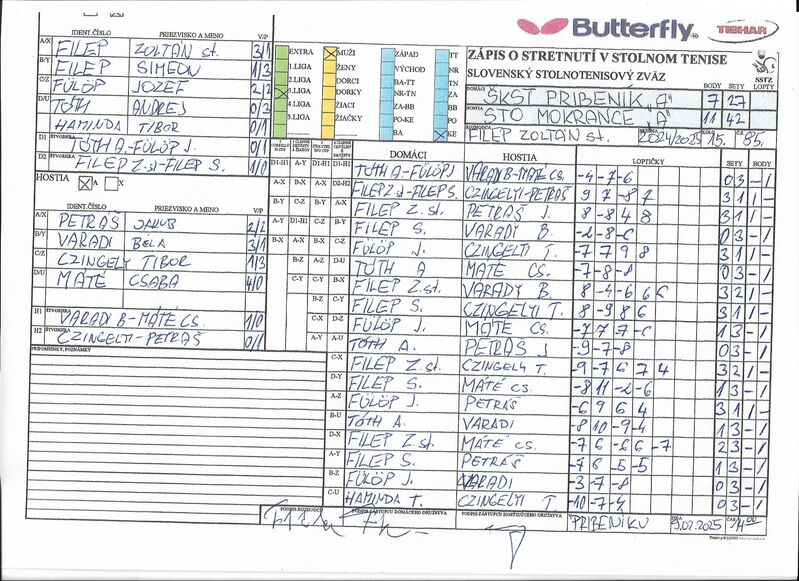 Butterfly
TIBHAR
ZÁPIS O STRETNUTÍ V STOLNOM TENISE
SLOVENSKÝ STOLNOTENISOVÝ ZVÄZ
SSTZ
BODY SETY LOPTY
DOMÁCI ŠKST PRIBENÍK "A" 7 27
HOSTIA STO MOKRANCE "A" 11 42
ROZHODCA FILEP ZOLTÁN st. SEZÓNA 2024/2025 KOLO 15. Č.Z. 85.
IDENT.ČÍSLO PRIEZVISKO A MENO V/P
A/X FILEP ZOLTÁN st. 3/1
B/Y FILEP SIMEON 1/3
C/Z FÜLÖP JOZEF 2/2
D/U TÓTH ANDREJ 0/3
HAMINDA TIBOR 0/1
D1 ŠTVORHRA TÓTH A-FÜLÖP J. 0/1
D2 ŠTVORHRA FILEP Z.st-FILEP S. 1/0
EXTRA
1.LIGA
2.LIGA
3.LIGA
4.LIGA
5.LIGA
MUŽI
ŽENY
DORCI
DORKY
ŽIACI
ŽIAČKY
ZÁPAD
VÝCHOD
BA-TT
NR-TN
ZA-BB
PO-KE
BA
TT
NR
TN
ZA
BB
PO
KE
HOSTIA A X
IDENT.ČÍSLO PRIEZVISKO A MENO V/P
A/X PETRÁŠ JAKUB 2/2
B/Y VARADI BÉLA 3/1
C/Z CZINGELY TIBOR 1/3
D/U MATÉ CSABA 4/0
H1 ŠTVORHRA VARADI B-MÁTÉ CS. 1/0
H2 ŠTVORHRA CZINGELYI-PETRÁŠ 0/1
PRIPOMIENKY, POZNÁMKY
DOMÁCI HOSTIA LOPTIČKY SETY BODY
D1-H1 TÓTH A-FÜLÖP J VARADI B-MATÉ CS. -4 -7 -6 0 3 - 1
D2-H2 FILEP Z.st-FILEP S. CZINGELYI-PETRÁŠ 9 7 -8 7 3 1 1 -
FILEP Z. st. PETRÁŠ J. 8 -8 4 8 3 1 1 -
FILEP S. VARADY B. -2 -8 -6 0 3 - 1
FÜLÖP J. CZINGELYI T. -7 7 9 8 3 1 1 -
TÓTH A MATÉ CS. -7 -8 -8 0 3 - 1
FILEP Z.st. VARADY B. 8 -4 -6 6 6 3 2 1 -
FILEP S. CZINGELYI T. 8 -9 8 6 3 1 1 -
FÜLÖP J. MATE CS. -7 7 -7 -6 1 3 - 1
TÓTH A. PETRÁŠ J -9 -7 -8 0 3 - 1
C-X FILEP Z. st. CZINGELY T. -9 -7 6 7 4 3 2 1 -
D-Y FILEP S. MATÉ CS. -8 11 -2 -6 1 3 - 1
A-Z FÜLÖP J. PETRÁŠ -6 9 6 4 3 1 1 -
B-U TÓTH A. VARADI -8 10 -9 -4 1 3 - 1
D-X FILEP Z.st. MATÉ CS. -7 6 -6 6 -7 2 3 - 1
A-Y FILEP S. PETRÁŠ -7 6 -5 -5 1 3 - 1
B-Z FÜLÖP J. VARADI -3 -7 -8 0 3 - 1
C-U HAMINDA T. CZINGELYI T. -10 -7 -4 0 3 - 1
PODPIS ROZHODCU PODPIS ZÁSTUPCU DOMÁCEHO DRUŽSTVA PODPIS ZÁSTUPCU HOSŤUJÚCEHO DRUŽSTVA V PRIBENÍKU DŇA 9.02.2025 ČAS 14 00